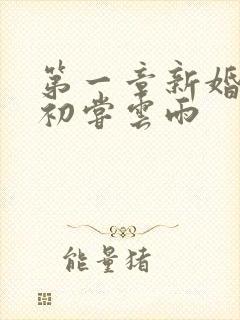 第一章新婚
初嘗雲雨
能量猪